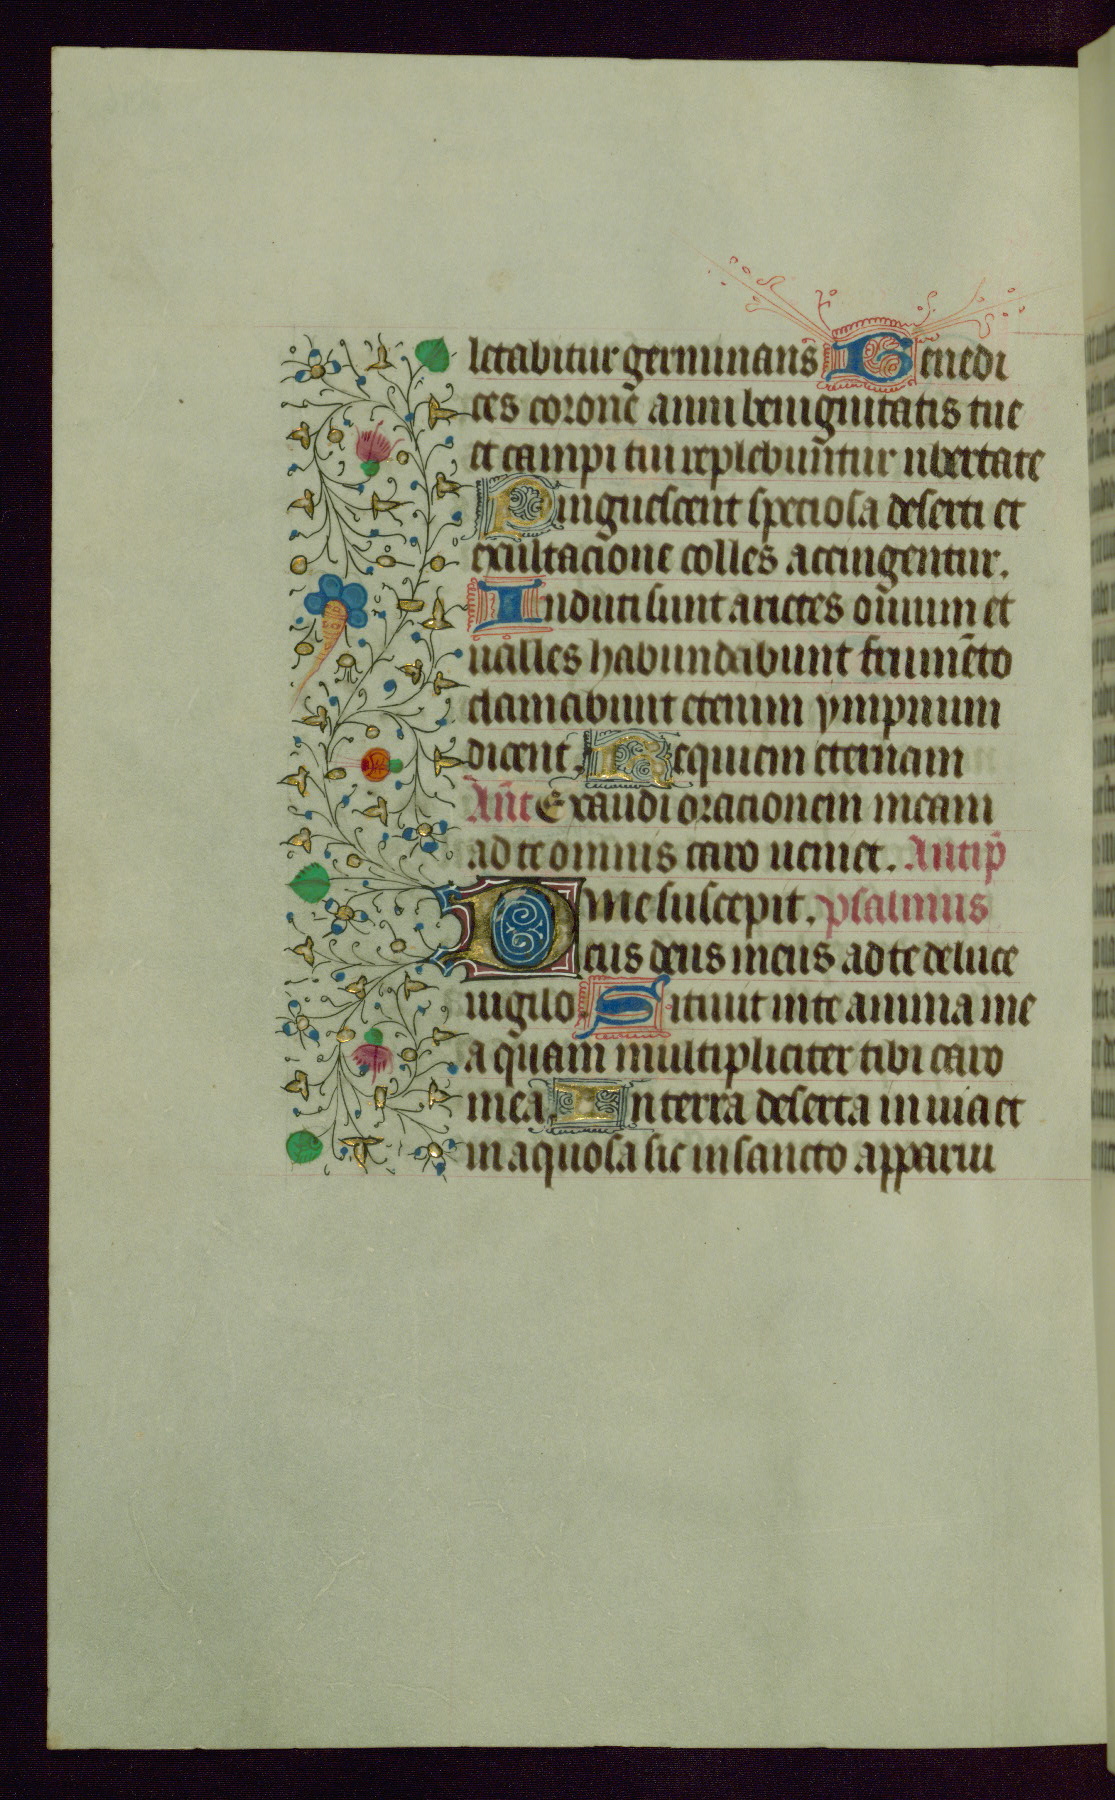 letabitur germinans Benedi
ces corone anni benignitatis tue
et campi tui replebuntur ubertate
Pinguescent speciosa deserti et
exultacione colles accingentur.
Induti sunt arietes ouium et
ualles habundabunt frumēto
clamabunt etenim ympnum
dicent. Requiem eternam
Añt Exaudi orationem meam
ad te omnis caro ueniet. Antip̄
Me suscepit. psalmus
Deus deus meus ad te de luce
uigilo Sitiuit in te anima me
a quam multipliciter tibi caro
mea In terra deserta in uia et
in aquosa sic in sancto apparui